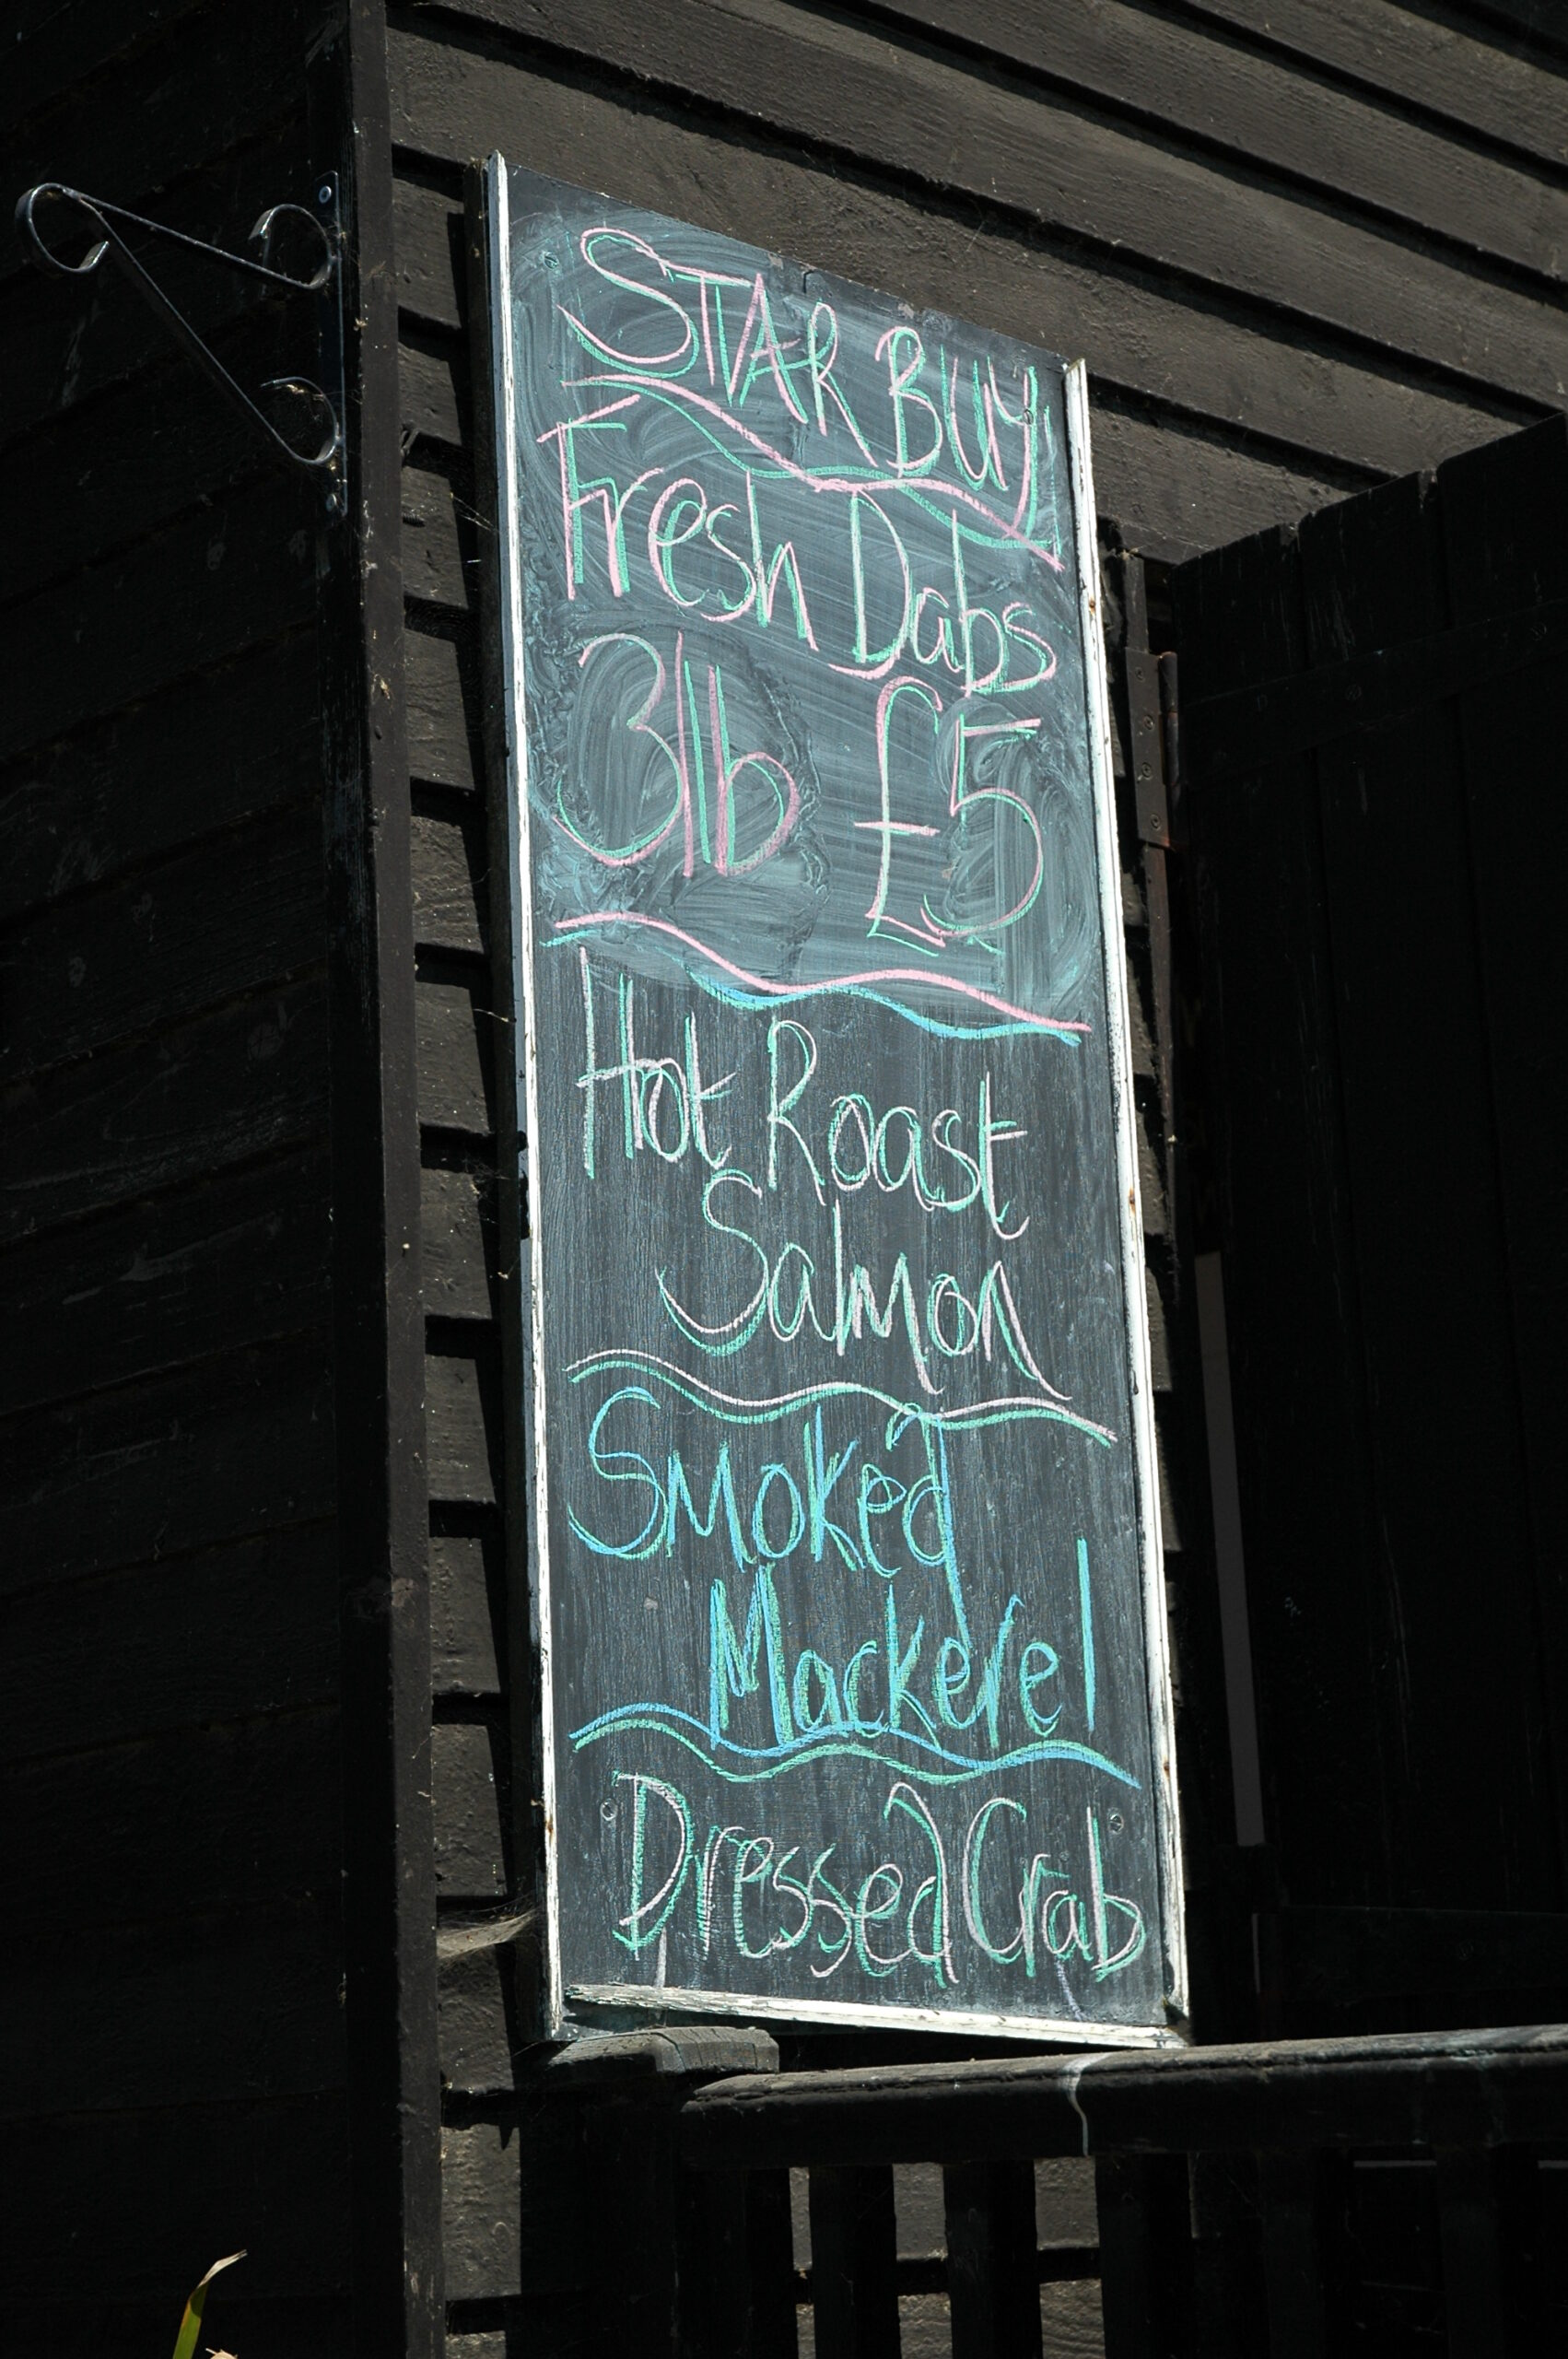 STAR BUY
Fresh Dabs
3lb £5
Hot Roast
Salmon
Smoked
Mackerel
Dressed Crab